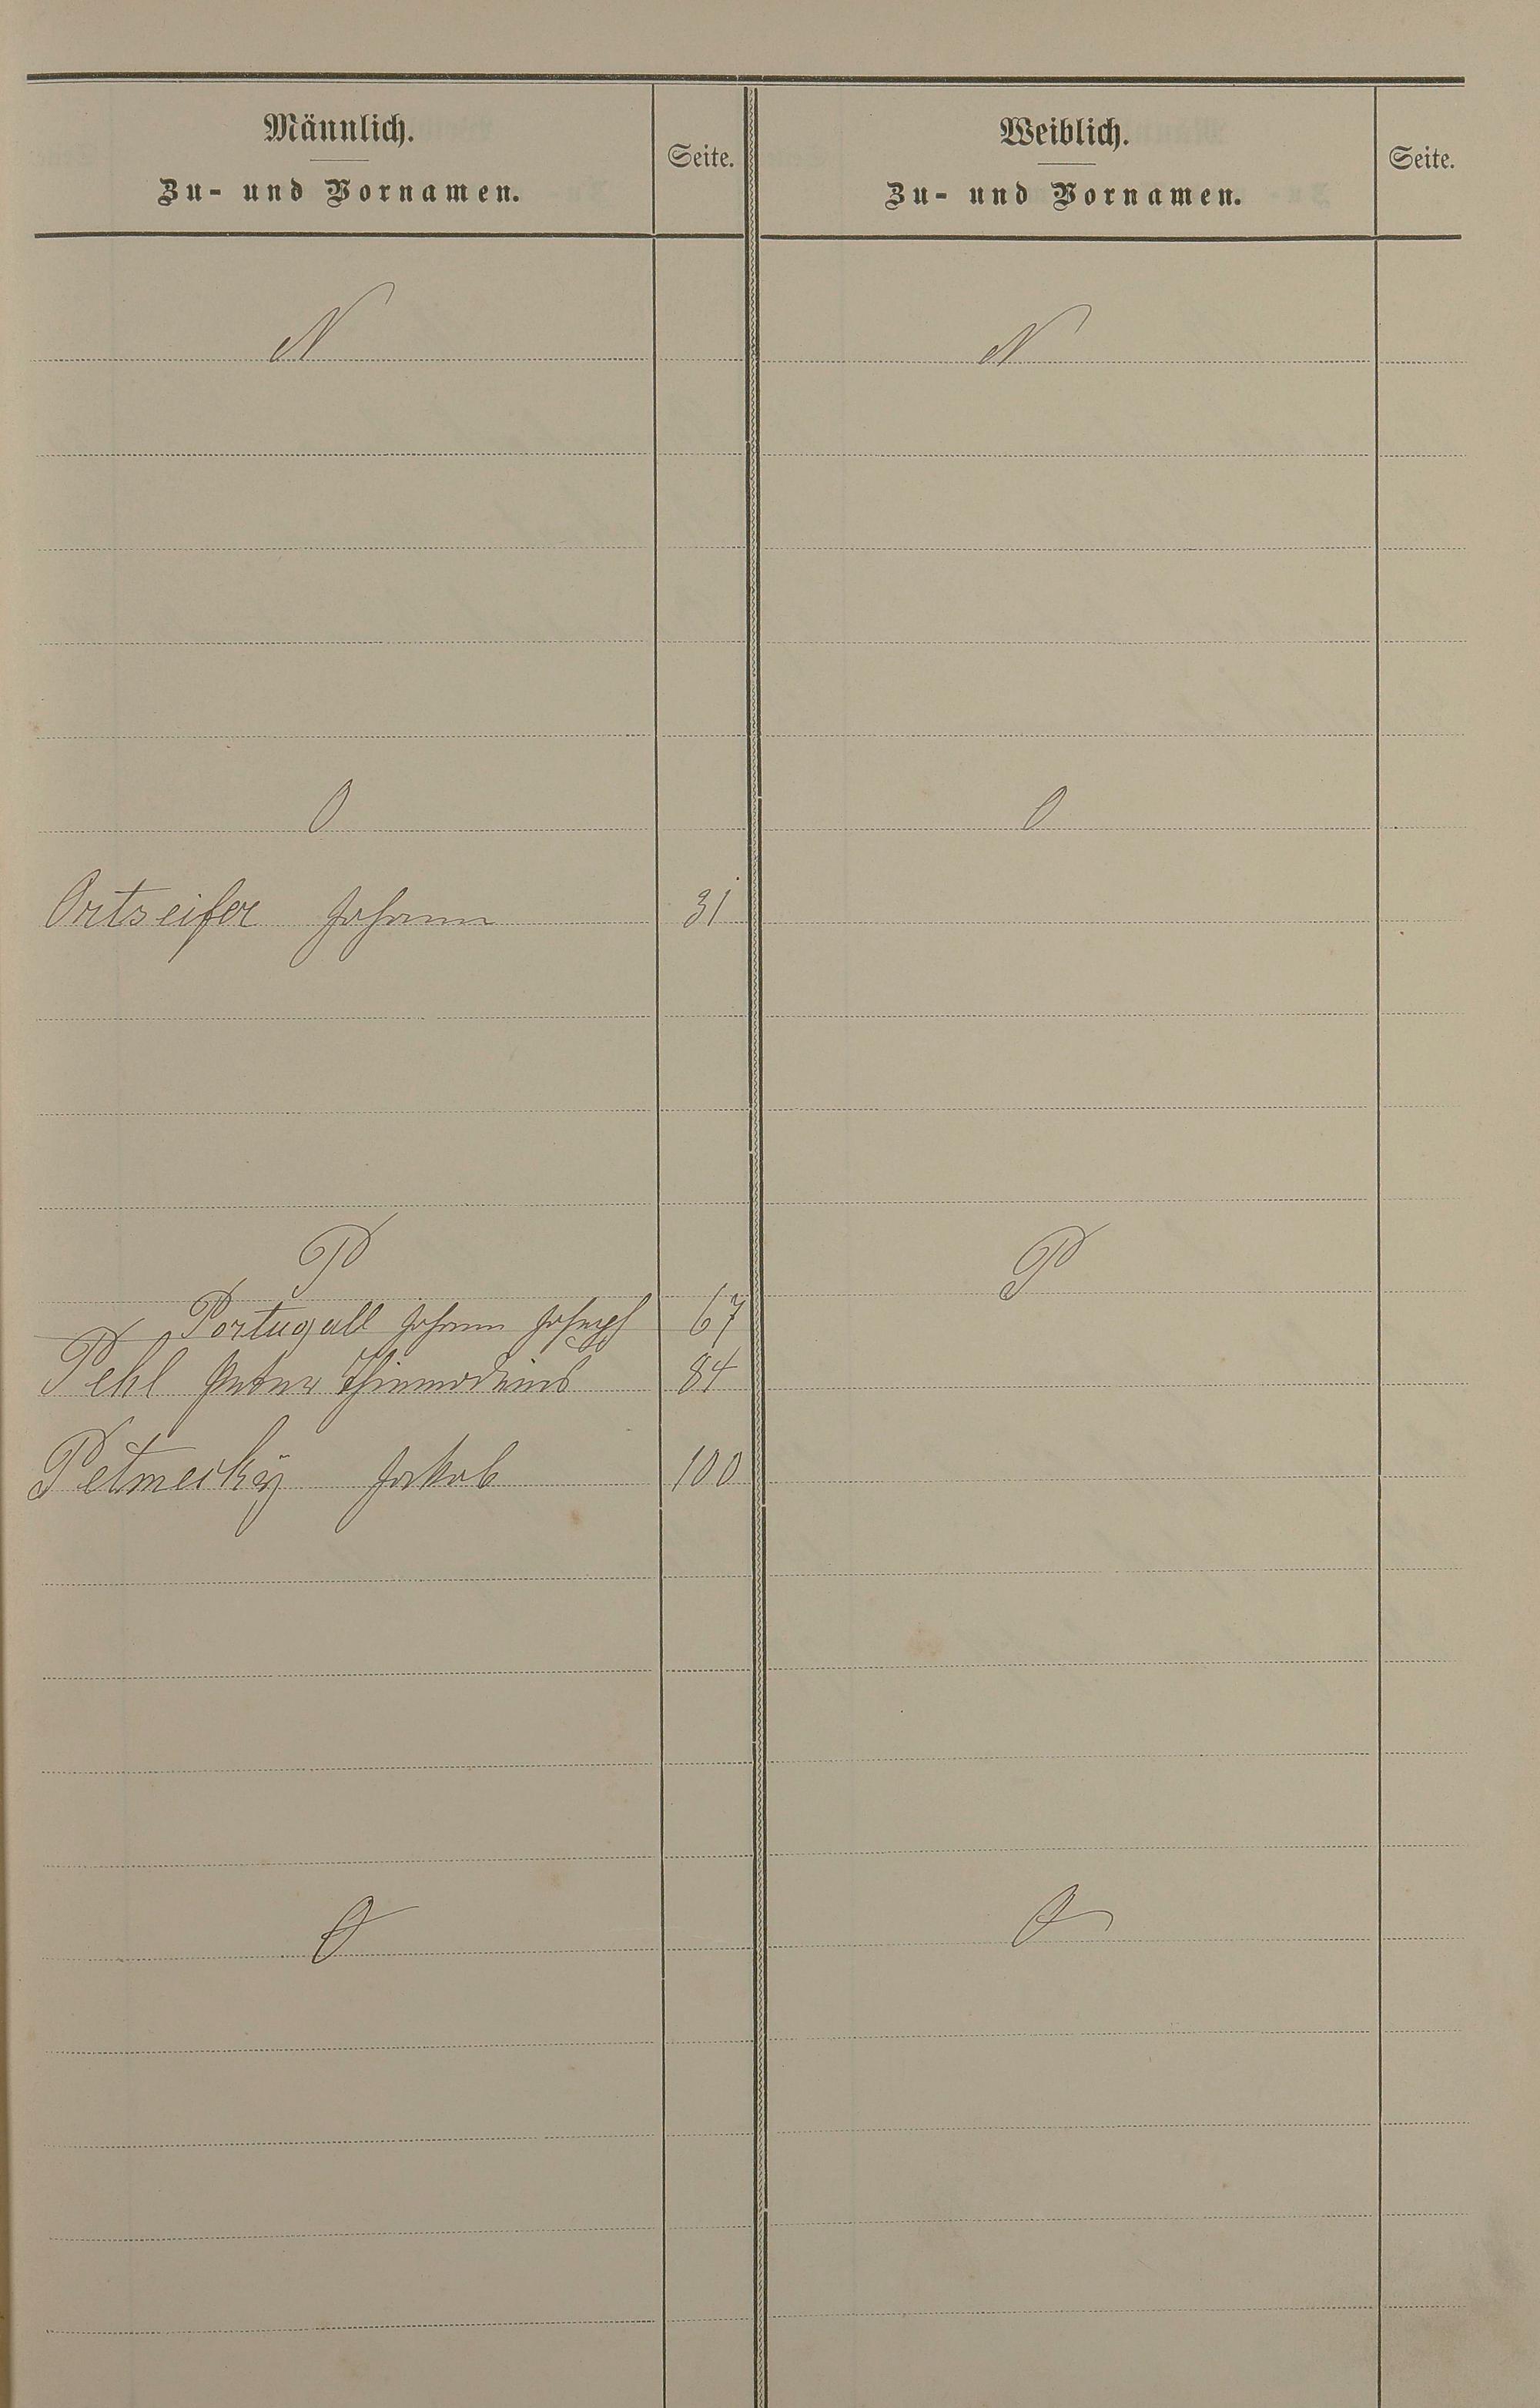 Männlich.
Zu- und Vornamen.
Seite.
Weiblich.
Zu- und Vornamen.
Seite.
N
N
O
O
Ortseifer Johann 31
P
P
Portugall Johann Joseph 67
Pehl Peter 84
Petmecky Jakob 100
Q
Q